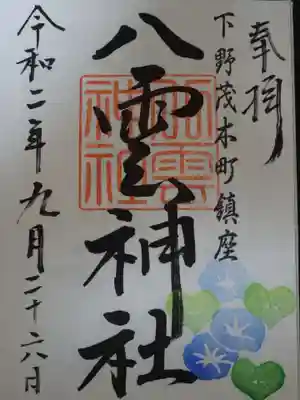 奉拝
下野茂木町鎮座
八雲神社
八雲神社
令和二年九月二十六日